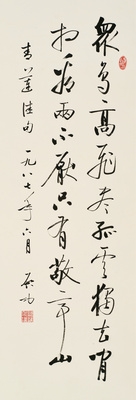 衆鳥高飛盡孤雲獨去閒
相看兩不厭只有敬亭山
青蓮佳句 一九八七年六月 啟功